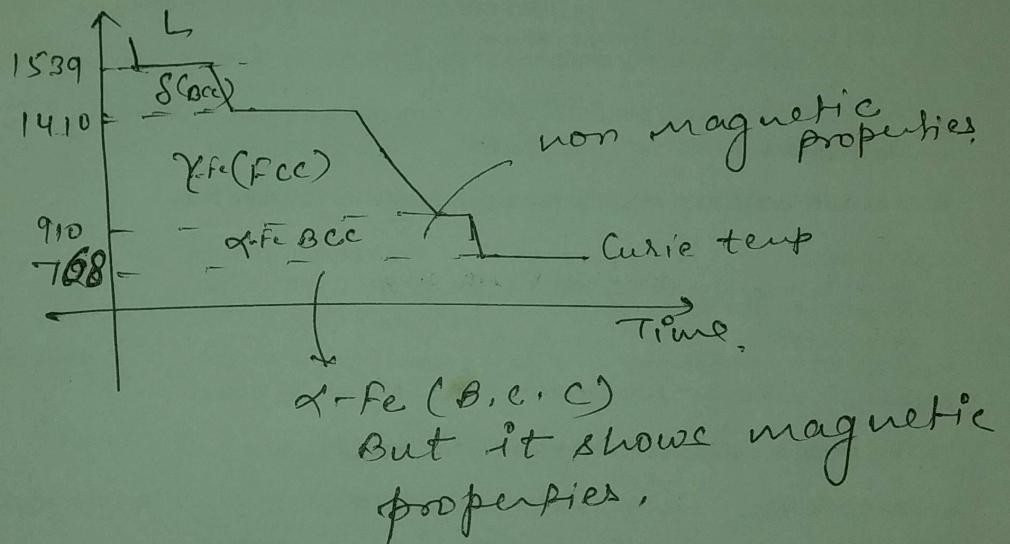 L
1539
δ(BCC)
1410
non magnetic
properties.
γ-Fe(FCC)
910
α-Fe BCC
768
Curie temp
Time.
α-Fe (B.C.C)
But it shows magnetic
properties.